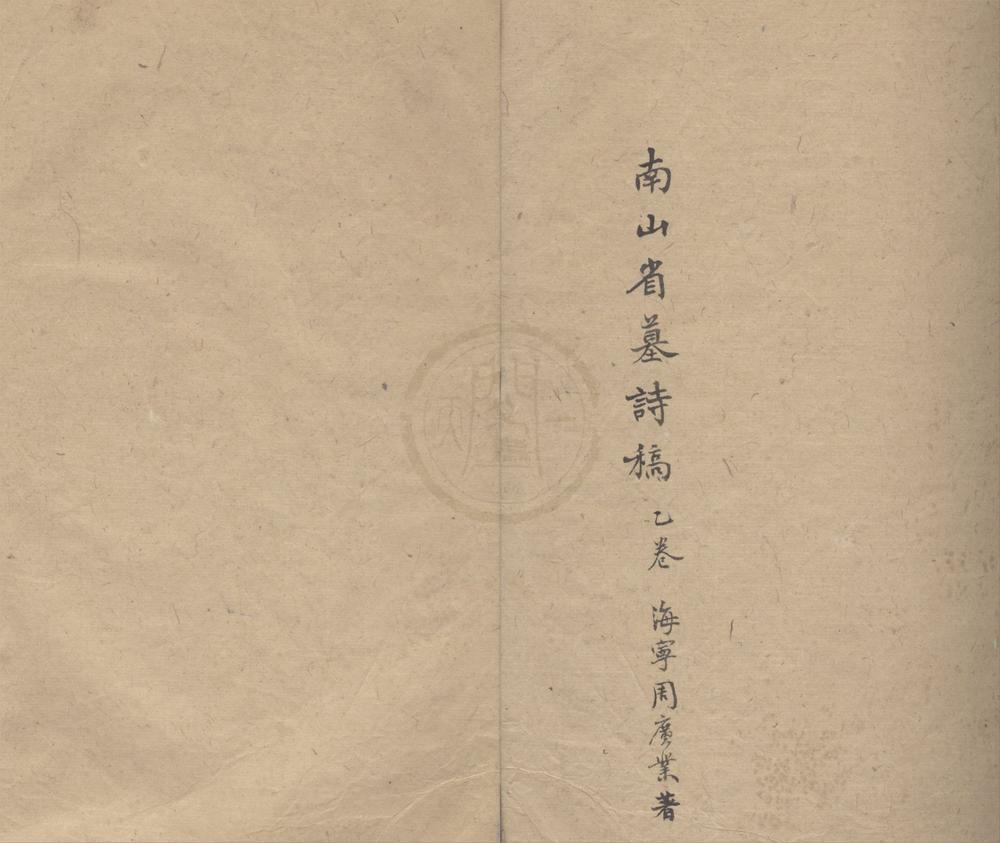 南山省墓詩稿乙卷 海寧周廣業著